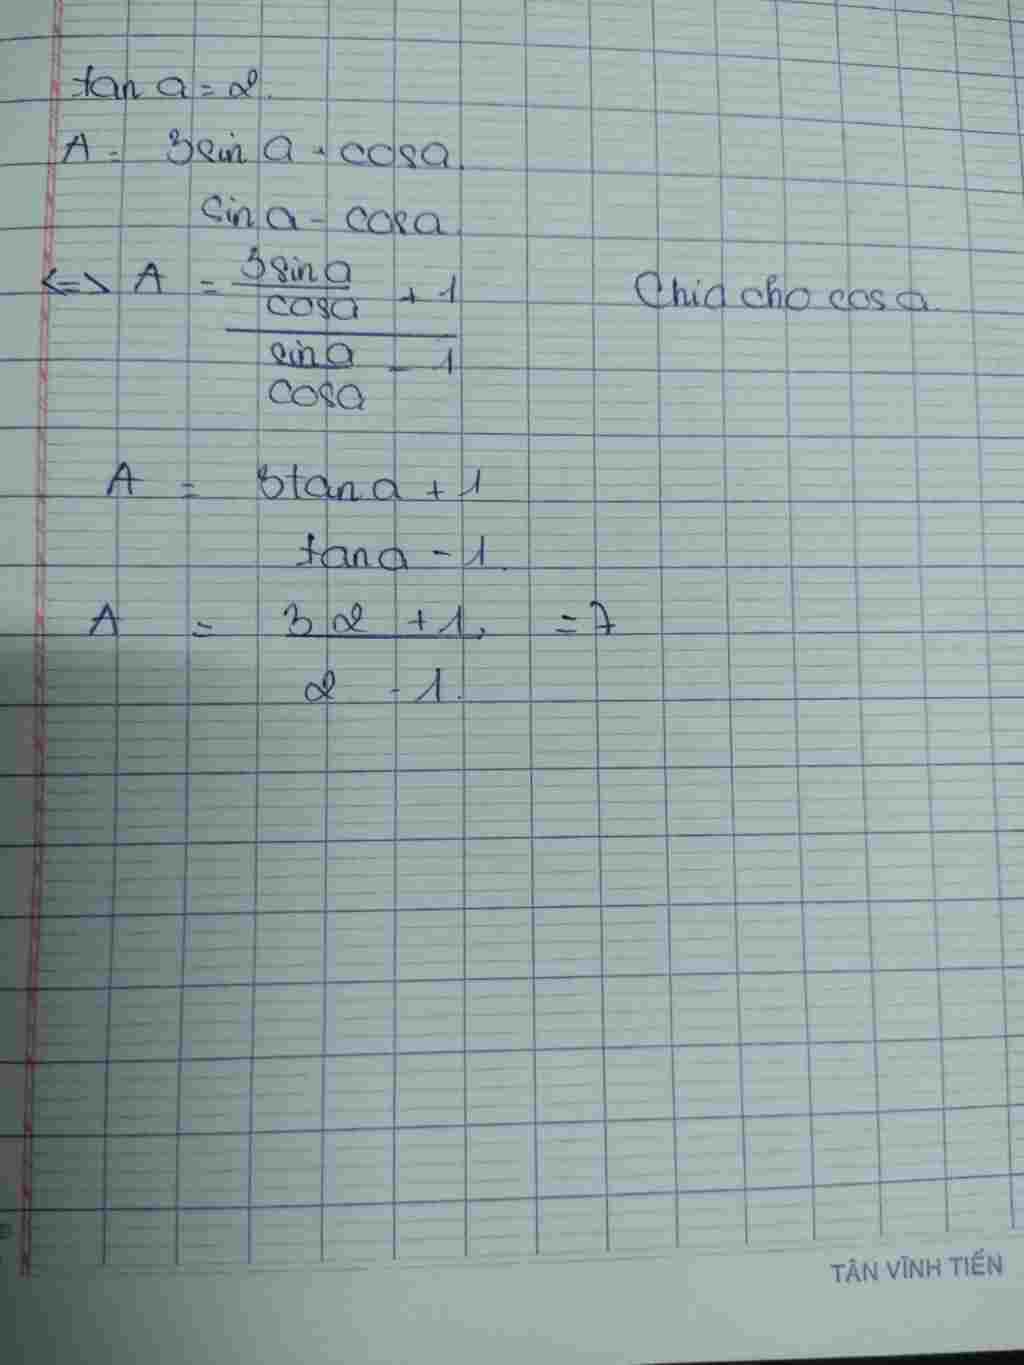 tan a = 2.
A = 3 sin a + cos a
sin a - cos a
<=> A = 3 sin a / cos a + 1 Chia cho cos a.
sin a / cos a - 1
A = 3 tan a + 1
tan a - 1.
A = 3 2 + 1, = 7
2 - 1.
TÂN VĨNH TIẾN